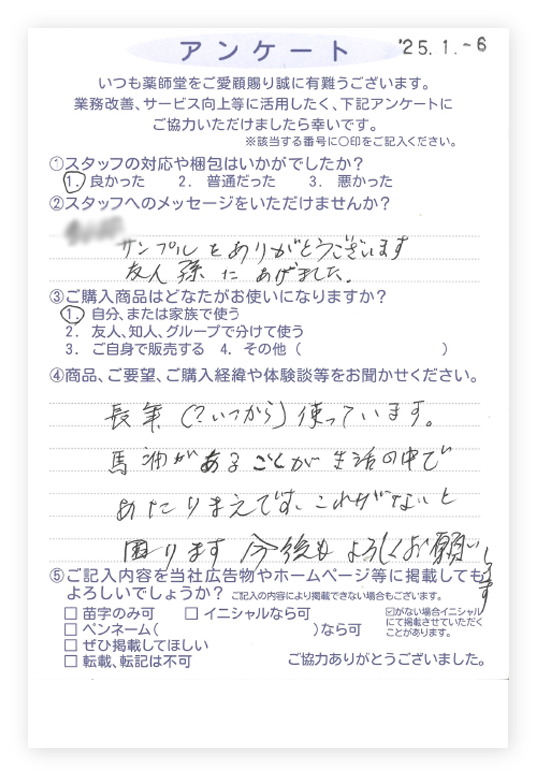 アンケート '25.1.-6
いつも薬師堂をご愛顧賜り誠に有難うございます。
業務改善、サービス向上等に活用したく、下記アンケートに
ご協力いただけましたら幸いです。
※該当する番号に〇印をご記入ください。
①スタッフの対応や梱包はいかがでしたか？
1. 良かった 2. 普通だった 3. 悪かった
②スタッフへのメッセージをいただけませんか？
サンプルをありがとうございます
友人 孫に あげました.
③ご購入商品はどなたがお使いになりますか？
1. 自分、または家族で使う
2. 友人、知人、グループで分けて使う
3. ご自身で販売する 4. その他（ ）
④商品、ご要望、ご購入経緯や体験談等をお聞かせください。
長年（?いつから）使っています。
馬油があることが生活の中で
あたりまえです、これがないと
困ります 今後も よろしくお願いします
⑤ご記入内容を当社広告物やホームページ等に掲載しても
よろしいでしょうか？ ご記入の内容により掲載できない場合もございます。
□ 苗字のみ可 □ イニシャルなら可
□ ペンネーム( )なら可
□ ぜひ掲載してほしい
□ 転載、転記は不可
☑がない場合イニシャル
にて掲載させていただく
ことがあります。
ご協力ありがとうございました。